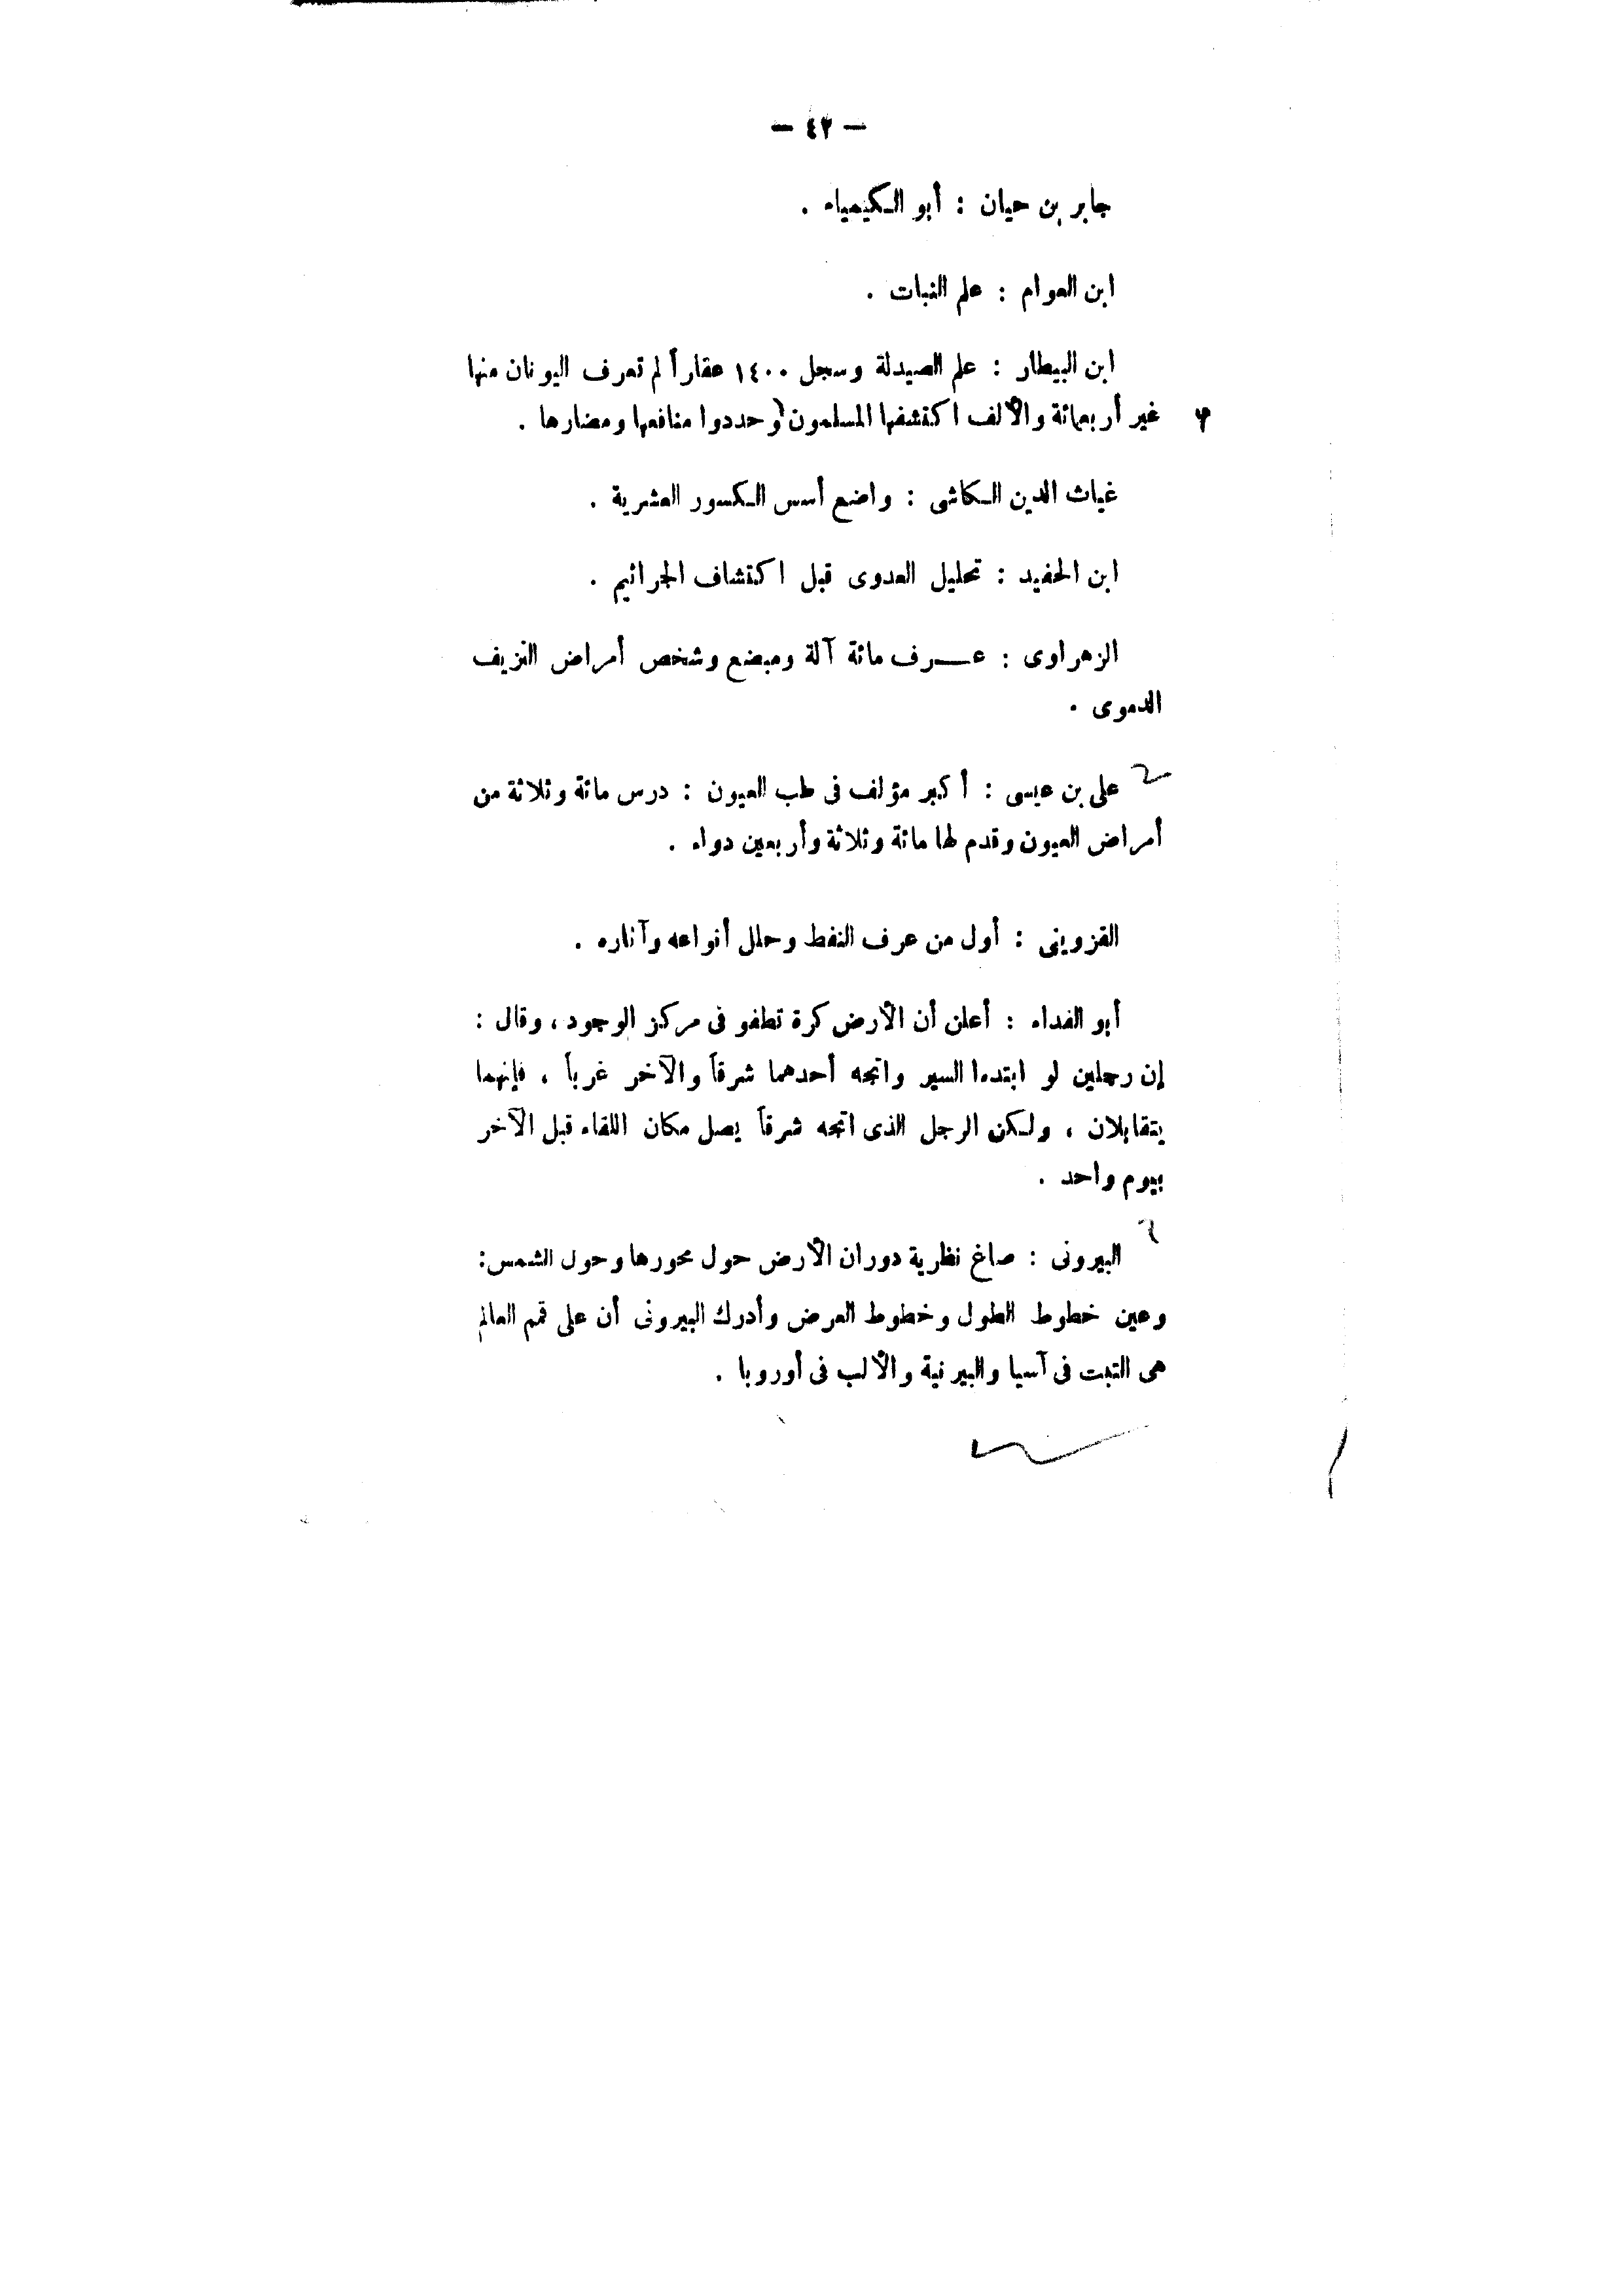 — ٤٢ —
جابر بن حيان : أبو الكيمياء .
ابن العوام : علم النبات .
ابن البيطار : علم الصيدلة وسجل ١٤٠٠ عقاراً لم تعرف اليونان منها
غير أربعمائة والألف اكتشفها المسلمون وحددوا منافعها ومضارها .
غياث الدين الكاشى : واضع أسس الكسور العشرية .
ابن الحفيد : تحليل العدوى قبل اكتشاف الجراثيم .
الزهراوى : عرف مائة آلة ومبضع وشخص أمراض النزيف
الدموى .
على بن عيسى : أكبر مؤلف فى طب العيون : درس مائة وثلاثة من
أمراض العيون وقدم لها مائة وثلاثة وأربعين دواء .
القزوينى : أول من عرف النفط وحلل أنواعه وآثاره .
أبو الفداء : أعلن أن الأرض كرة تطفو فى مركز الوجود ، وقال :
إن رجلين لو ابتدءا السير واتجه أحدهما شرقاً والآخر غرباً ، فإنهما
يتقابلان ، ولكن الرجل الذى اتجه شرقاً يصل مكان اللقاء قبل الآخر
بيوم واحد .
البيرونى : صاغ نظرية دوران الأرض حول محورها وحول الشمس:
وعين خطوط الطول وخطوط العرض وأدرك البيرونى أن على قمم العالم
هى التبت فى آسيا والبيرنية والألب فى أوروبا .